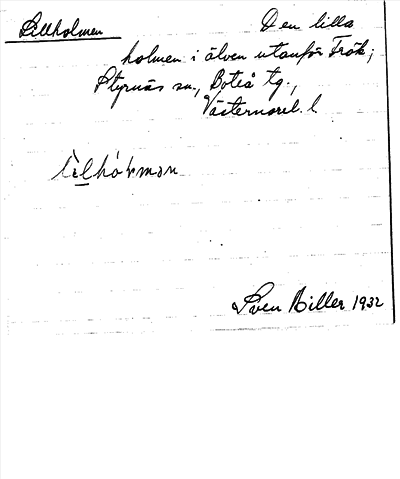 Lillholmen
Den lilla
holmen i älven utanför Frök;
Styrnäs sn., Boteå tg.,
Västernorrl. l.
Sven Biller 1932